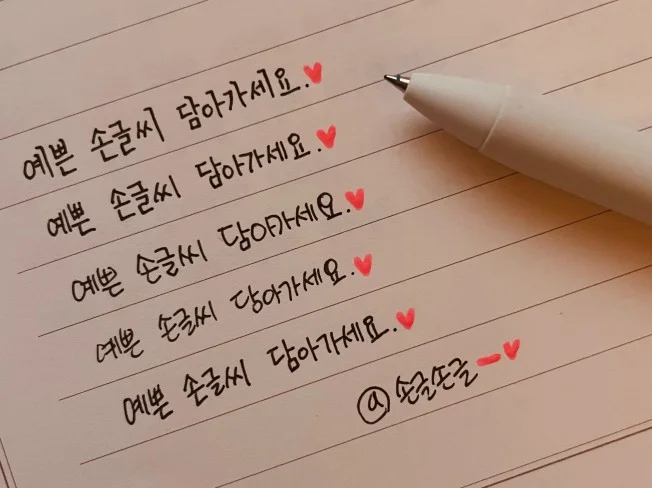 예쁜 손글씨 담아가세요.♥
예쁜 손글씨 담아가세요.♥
예쁜 손글씨 담아가세요.♥
예쁜 손글씨 담아가세요.♥
예쁜 손글씨 담아가세요.♥
@손글손글-♥